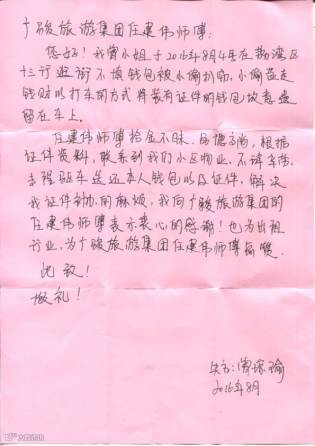 广骏旅游集团任建伟师傅:
您好! 我曾小姐于2016年8月4号在荔湾区
十三行逛街不慎钱包被小偷扒窃, 小偷盗走
钱财以打车的方式将装有证件的钱包故意遗
留在车上。
任建伟师傅拾金不昧, 品德高尚, 根据
证件资料, 联系到我们小区物业, 不辞辛劳,
专程驱车送还本人钱包以及证件, 解决
我证件补办的麻烦, 我向广骏旅游集团的
任建伟师傅表示衷心的感谢! 也为出租
行业, 为广骏旅游集团任建伟师傅
此致!
敬礼!
失主: 曾琼瑜
2016年8月